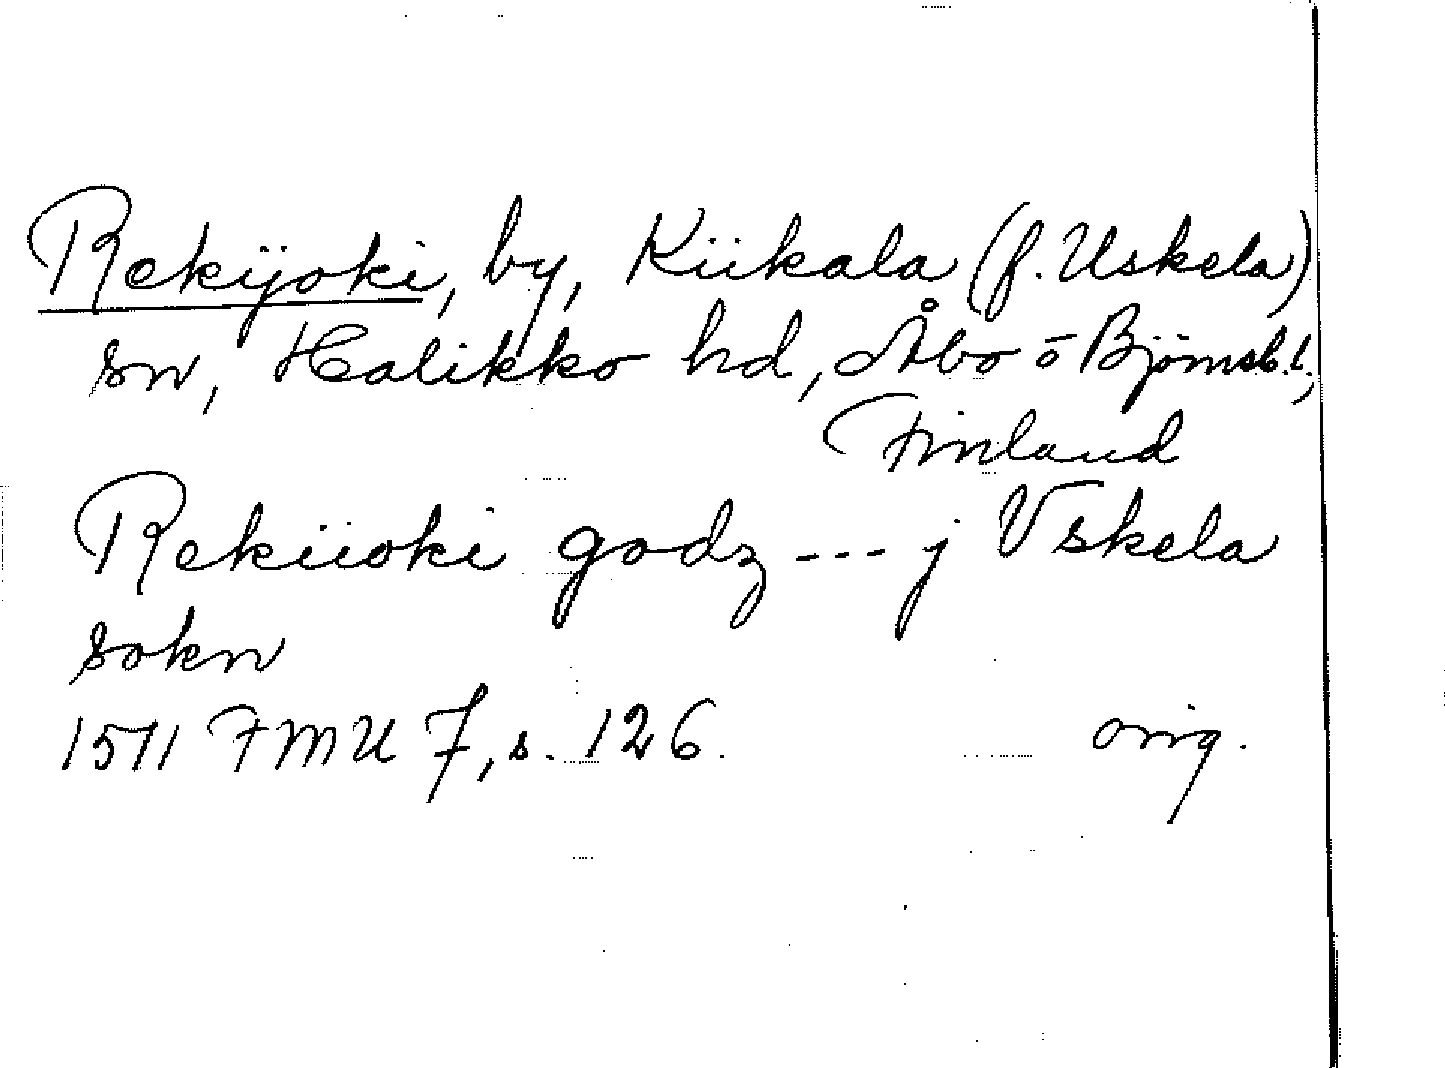 Rekijoki, by, Kiikala (f. Uskela)
sn, Halikko hd, Åbo o Björneb. l.,
Finland
Rekiioki godz --- j Vskela
sokn
1511 FMU 7, s. 126. orig.